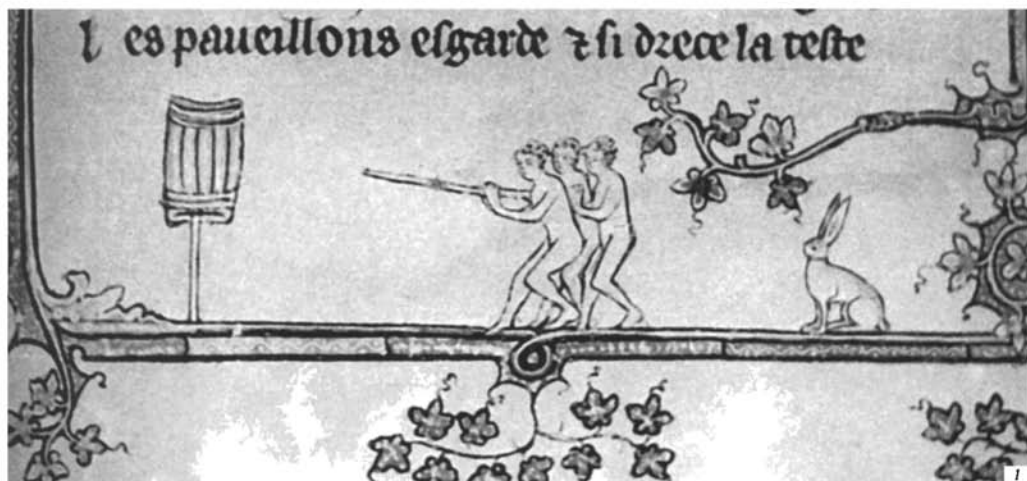 l es paueillons esgarde ⁊ si drece la teste
1